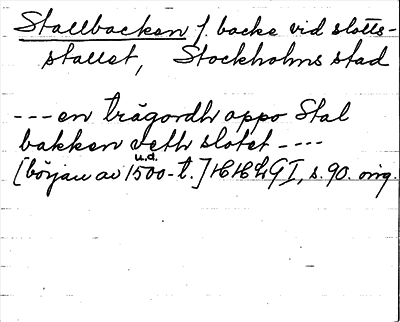 Stallbacken f. backe vid slotts-
stallet, Stockholms stad
--- en trägordh oppo Stal
bakken veth slotet ----
u.d.
[början av 1500-t.] HHLG I, s. 90. orig.